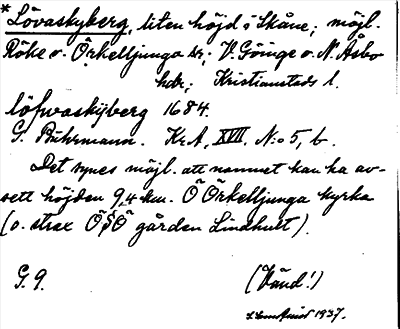 * Lövaskyberg, liten höjd i Skåne; möjl.
Röke o. Örkelljunga sr; V. Göinge o. N. Åsbo
hdr; Kristianstads l.
löfwaskÿberg 1684.
G. Buhrmann. Kr.A, XVII. N:o 5, b.
Det synes möjl. att namnet kan ha av-
sett höjden 9,4 km. Ö Örkelljunga kyrka
(o. strax ÖSÖ gården Lindhult).
G. 9. (Vänd!)
1937.